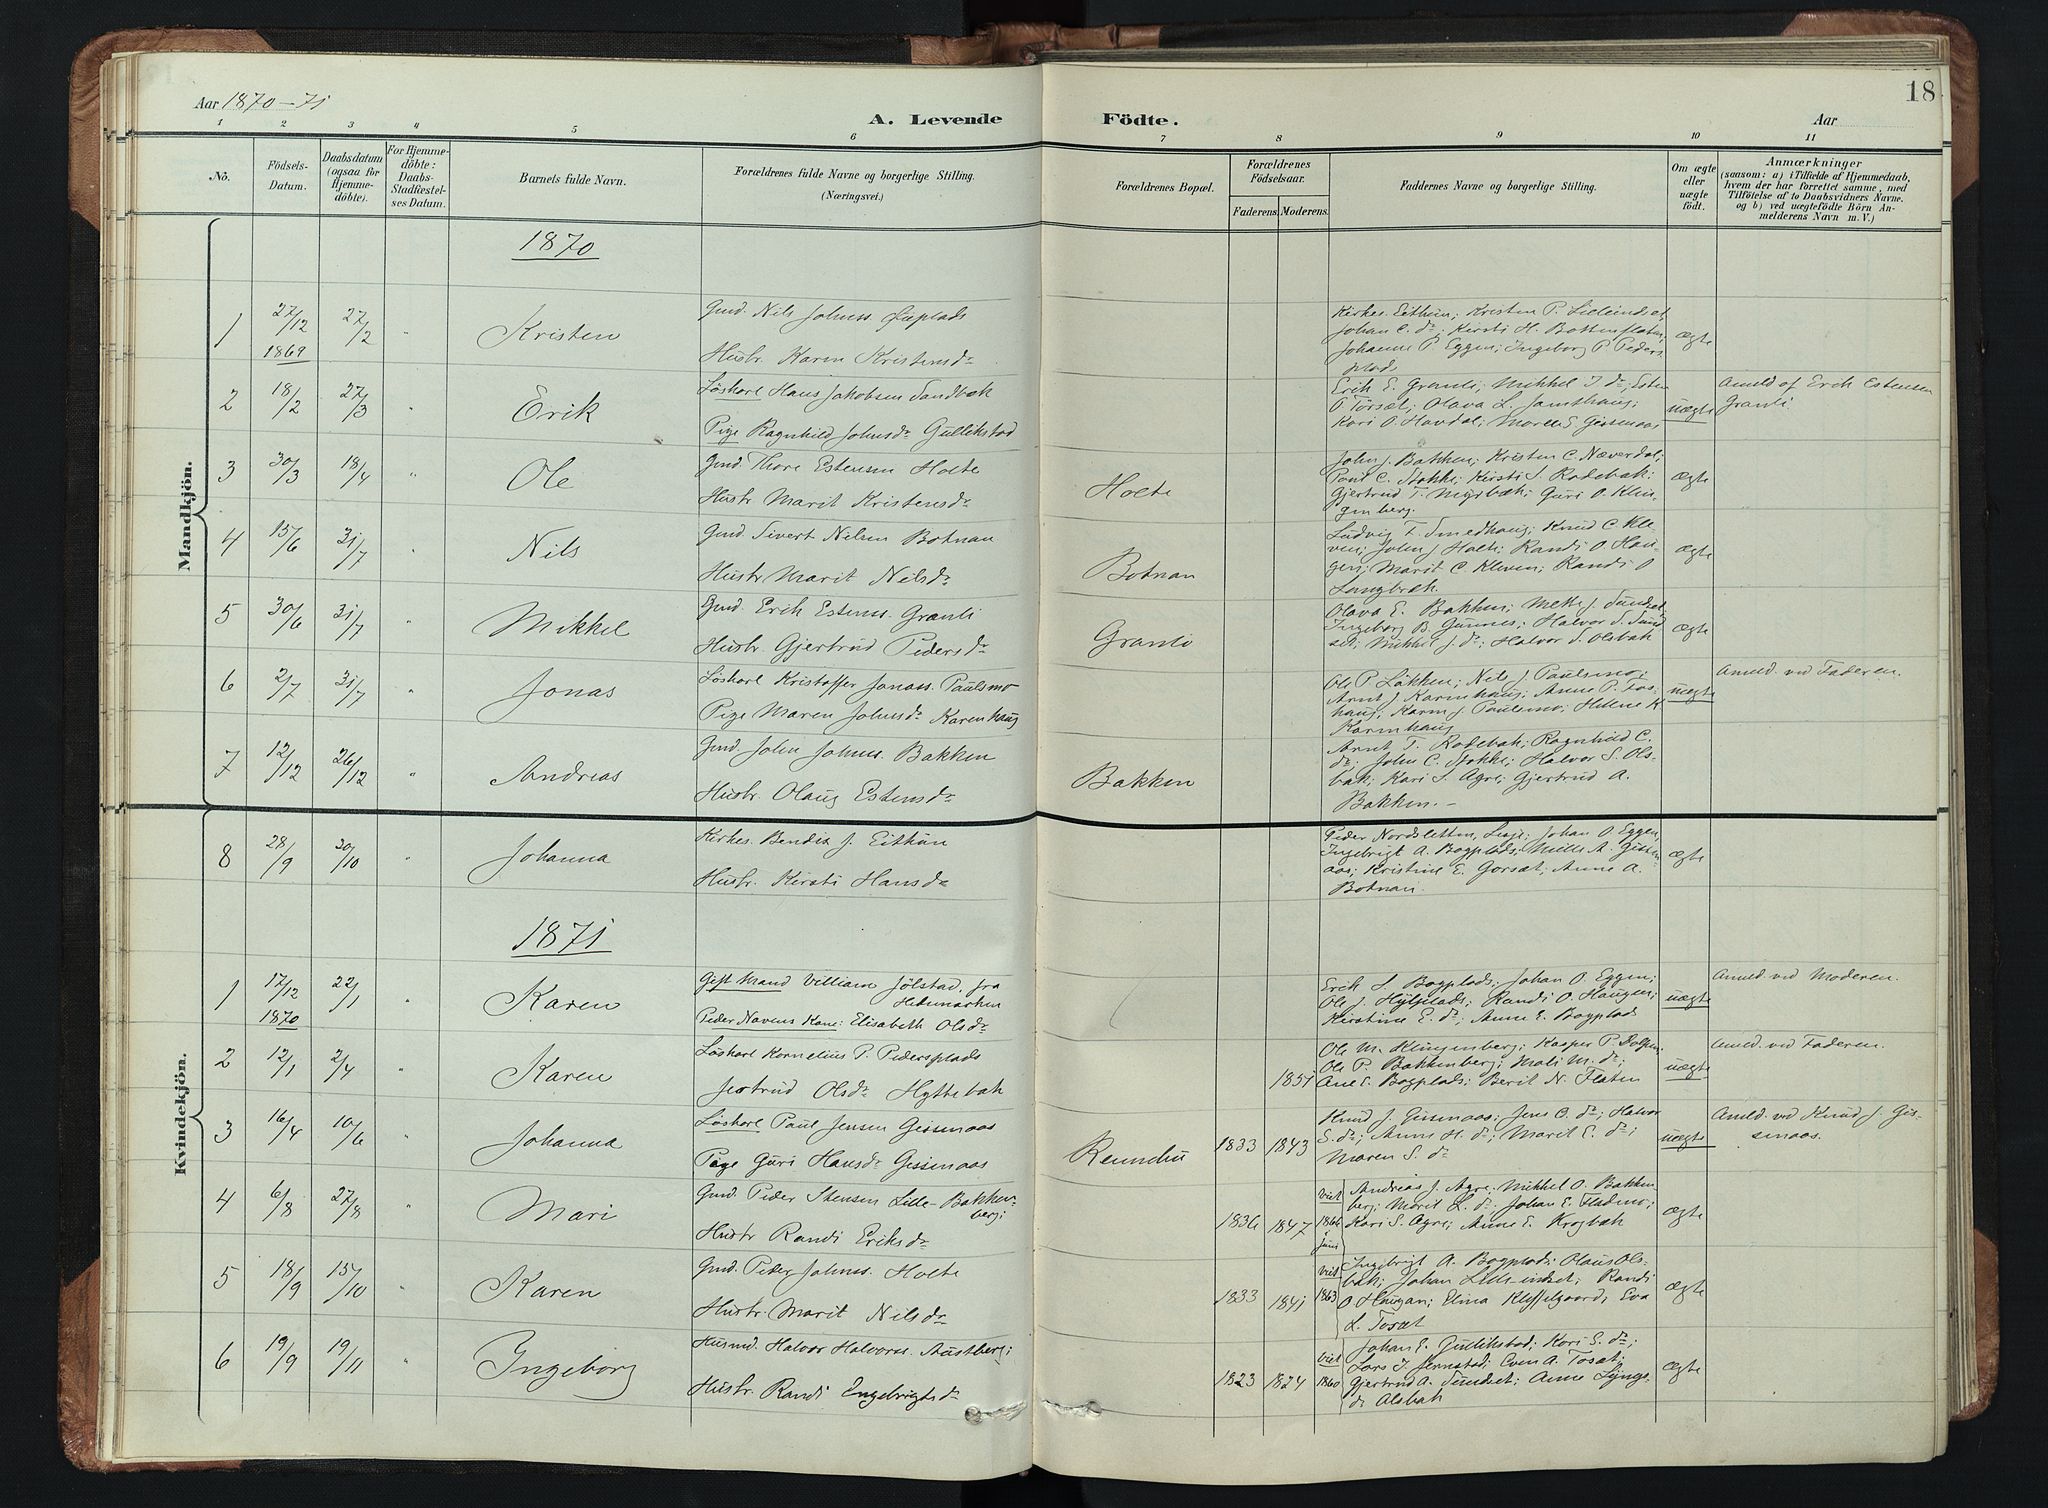 Aar 1870-71
A. Levende Födte.
Aar
18
1 2 3 4 5 6 7 8 9 10 11
No.
Födsels-
Datum.
Daabsdatum
(ogsaa for
Hjemme-
döbte).
For Hjemme-
döbte:
Daabs-
Stadfæstel-
ses Datum.
Barnets fulde Navn.
Forældrenes fulde Navne og borgerlige Stilling.
(Næringsvei.)
Forældrenes Bopæl.
Forældrenes
Födselsaar.
Faderens. Moderens.
Faddernes Navne og borgerlige Stilling.
Om ægte
eller
uægte
födt.
Anmærkninger
(saasom: a) i Tilfælde af Hjemmedaab,
hvem der har forrettet samme, med
Tilföielse af to Daabsvidners Navne.
og b) ved uægtefödte Börn An-
melderens Navn m. V.)
Mandkjön.
Kvindekjön.
1870
1 27/12 1869 27/2 " Kristen
Gmd. Nils Johnss. Øieplads
Husbr. Karen Kristensdr
Kirkes. Eithun; Kristen P. Lilleindset
Johan E. dr; Kirsti H. Bottenfladen;
Johanne P. Eggen; Ingeborg P. Peders
plads
ægte
2 18/2 27/3 " Erik
Løskarl Hans Jakobsen Sandbak
Pige Ragnhild Johnsdr Gullikstad
Erik E. Granli; Mikkel J. dr; Esten
P. Torsæt; Olava L. Jamthaug;
Kari O. Havdal; Marit E. Gissenaas
uægte
Anmeld af Erik Estensen
Granli
3 30/3 18/4 " Ole
Gmd. Thore Estensen Holte
Hustr Marit Kristensdr
Holte
John J. Bakken; Kristen C. Næverdal;
Poul C. Stokke; Kirsti S. Rodebak;
Gjertrud T. Myrbak; Guri O. Klin-
genberg.
ægte
4 15/6 31/7 " Nils
Gmd. Sivert Nilsen Botnan
Hustr Marit Nilsdr
Botnan
Ludvig T. Smedhaug; Knud C. Kle-
ven; John J. Holte; Randi O. Hau-
gen; Marit C. Kleven; Randi O
Langbak.
ægte
5 30/6 31/7 " Mikkel
Gmd. Erik Estenss. Granli
Husbr. Gjertrud Pedersdr
Granli
Olava E. Bakken; Mette J. Sundset
Ingeborg B. Gunnes; Halvor S. Sund
set; Mikkel J. dr; Halvor S. Olsbak
ægte
6 2/7 31/7 " Jonas
Løskarl Kristoffer Jonass. Paulsmo
Pige Maren Johnsdr Karenhaug
Ole P. Løkken; Nils J. Paulsmo;
Arnt J. Karenhaug; Anne P. Fos-
haug; Karen J. Paulsmo; Hellene K
Karenhaug
uægte
Anmeld. ved Faderen.
7 12/12 26/12 " Andreas
Gmd. John Johnss. Bakken
Husbr. Olaug Estensdr
Bakken
Arnt T. Rodebak; Ragnhild C.
dr; John C. Stokke; Halvor S. Ols-
bak; Kari S. Agre; Gjertrud A.
Bakken. -
ægte
8 28/9 30/10 " Johanna
Kirkes. Bendix J. Eithun
Husbr. Kirsti Hansdr
Peder Nordsletten, Lesje; Johan O. Eggen;
Ingebrigt A. Bogplads; Mille A. Gissen-
aas; Kristine E. Gorsæt; Anne A.
Botnan.
ægte
1871
1 17/12 1870 22/1 " Karen
Gift Mand Villiam Jølstad, fra
Hedemarken
Peder Navens Kone: Elisabeth Olsdr
Erik L. Bogplads; Johan O. Eggen;
Ole J. Hylplads; Randi O. Haugen;
Kirstine E. dr; Anne E. Bogplads
uægte
Anmeld. ved Moderen.
2 12/1 2/4 " Karen
Løskarl Kornelius P. Pedersplads
Jertrud Olsdr Hyttebak
1851
Ole M. Klingenberg; Kasper P. Dolpen
Ole P. Bakkenberg; Mali M. dr;
Ane E. Bogplads; Berit N. Flaten
uægte
Anmeld. ved Faderen.
3 16/4 10/6 " Johanna
Løskarl Paul Jensen Gissenaas
Pige Guri Hansdr Gissenaas
Rennebu
1833 1843
Knud J. Gissenaas; Jens O. dr; Halvor
S. dr; Anne H. dr; Marit E. dr;
Maren S. dr
uægte
Anmeld. ved Knud J. Gis-
senaas.
4 6/8 27/8 " Mari
Gmd. Peder Stensen Lille-Bakken-
berg;
Hustr Randi Eriksdr
1836 1847
viet
1866
Juni
Andreas J. Agre; Mikkel O. Bakken
berg; Marit L. dr; Johan E. Flaamo;
Kari S. Agre; Anne E. Krogbak
ægte
5 18/9 15/10 " Karen
Gmd. Peder Johnss. Holte
Hustr. Marit Nilsdr
1833 1841
viet
1863
Ingebrigt A. Bogplads; Olaus Ols-
bak; Johan Lille-indset; Randi
O Haugan; Elina Kleffelgaard; Eva
L. Torsæt
ægte
6 19/9 19/11 " Ingeborg
Husmd. Halvor Halvorss. Austberg;
Husbr. Randi Ingebrigtsdr
1823 1824
viet
1860
Johan E. Gullikstad; Kari E. dr;
Lars I. Jernstad; Even A. Tosæt;
Gjertrud A. Sundset; Anne Lyngs-
dr Alsbak
ægte